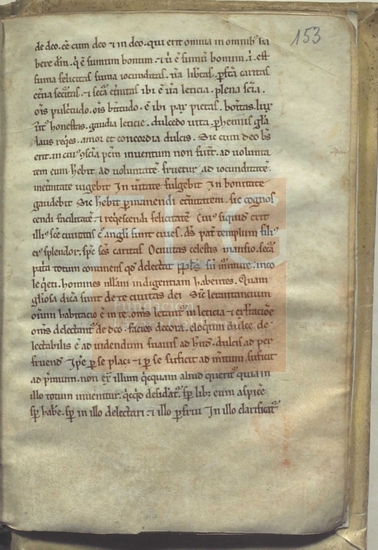 153
de deo. eē cum deo ⁊ in deo. qui erit omnia in omnibꝰ ha
bere dm̄. q̄ ē summum bonum. ⁊ ubi ē summū bonum. ibi est
summa felicitas summa iocunditas. uera libertas. pfecta caritas
eterna securitas. ⁊ secura eternitas ibi ē uera leticia. plena scientia.
omnis pulcritudo. omnis beatitudo. ē ibi pax pietas. bonitas. lux
uirtus honestas. gaudia leticie. dulcedo uita phennis gla
laus reqes. amor et concordia dulcis. Sic cum deo bs
erit. in cuius scia pctm inuentum non fuerit. ad uolunta
tem eum habebit. ad uoluntatē fruetur. ad iocunditatē.
in eternitate uigebit In ueritate fulgebit In bonitate
gaudebit Sic habebit pmanendi eternitatem. sic cognos
cendi facilitatē. ⁊ reqescendi felicitatē
illius sce ciuitatis ē angli sunt ciues. ds pat templum filiꝰ
eius splendor. sps scs caritas O ciuitas celestis mansio. secura
patria totum continens qd delectat sine murmure. inco
le qeti. homines nullam indigentiam habentes. Quam
gliosa dicta sunt de te ciuitas dei Sic letantium
omnium habitatio ē in te. omnes letantur in leticia ⁊ exultacōe
omnes delectantur de deo. facies decora. eloquium dulce. de
lectabilis ē ad uidendum suauis ad habendum. dulcis ad per
fruendum Ipse p se placet ⁊ p se sufficit ad meritum. sufficit
ad pmium. non extra illum qcquam aliud queritur quia in
illo totum inuenitur. qcqd desiderat. Semp libet eum aspice
semp habere. semp in illo delectari. ⁊ illo pfrui In illo clarificatur